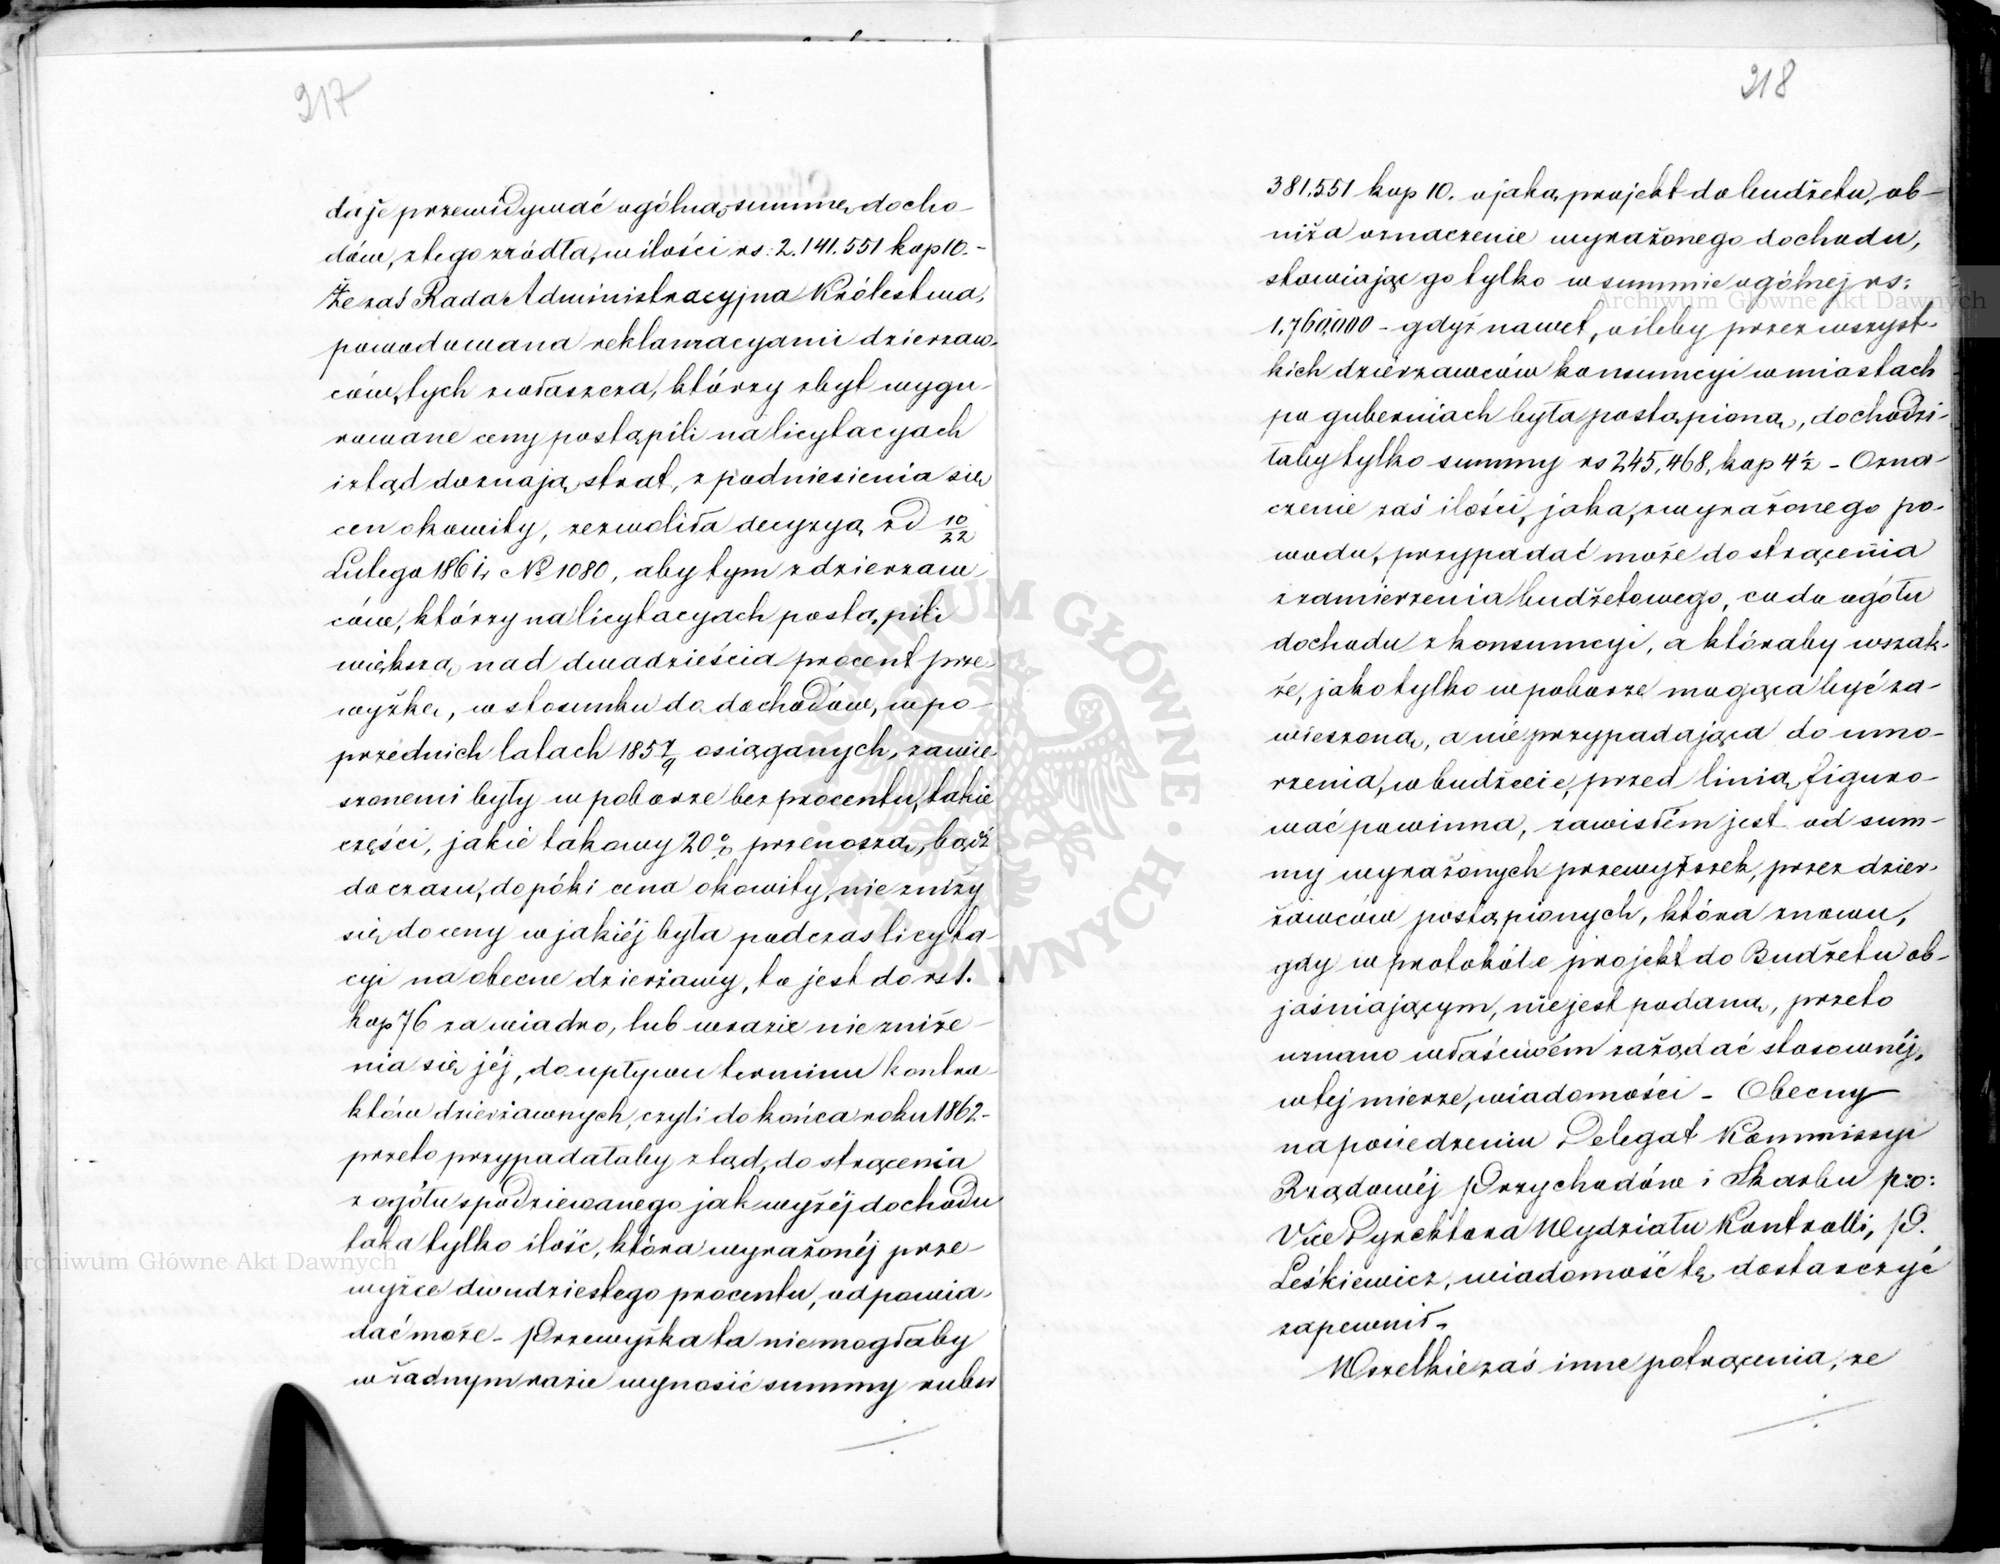 217
daje przewidywać ogólną summę docho-
dów, z tego źródła, w ilości rs: 2.141.551 kop 10.-
Że zaś Rada Administracyjna Królestwa,
powodowana reklamacyami dzierżaw-
ców, tych zwłaszcza, którzy zbyt wygu-
rowane ceny postąpili na licytacyach
i ztąd doznają strat, z podniesienia się
cen okowity, zezwoliła decyzyą z d 10/22
Lutego 1861 r № 1080, aby tym z dzierżaw-
ców, którzy na licytacyach postąpili
większą nad dwadzieścia procent prze-
wyżkę, w stosunku do dochodów, w po-
przednich latach 1857/9 osiąganych, zawie-
szonemi były w poborze bez procentu, takie
części, jakie takowy 20% przenoszą, bądź
do czasu, dopóki cena okowity, nie zniży
się do ceny w jakiéj była podczas licyta-
cyi na obecne dzierżawy, to jest do rs 1.
kop 76 za wiadro, lub w razie nie zniże-
nia się jéj, do upływu terminu kontra-
któw dzierżawnych, czyli do końca roku 1862-
przeto przypadałaby ztąd, do strącenia
z ogółu spodziewanego jak wyżéj dochodu
taka tylko ilość, która wyrażonéj prze-
wyżce dwudziestego procentu, odpowia-
dać może - Przewyżka ta nie mogłaby
w żadnym razie wynosić summy rubsr
218
381.551 kop 10. o jaką projekt do budżetu, ob-
niża oznaczenie wyrażonego dochodu,
stawiając go tylko w summie ogólnej rs:
1,760,000 - gdyż nawet, o ileby przez wszyst-
kich dzierżawców konsumcyi w miastach
po guberniach była postąpioną, dochodzi-
łaby tylko summy rs 245,468, kop 4½ - Ozna-
czenie zaś ilości, jaka, z wyrażonego po-
wodu, przypadać może do strącenia
z zamierzenia budżetowego, co do ogółu
dochodu z konsumcyi, a któraby wszak-
że, jako tylko w poborze mogąca być za-
wieszoną, a nie przypadająca do umo-
rzenia, w budżecie, przed linią, figuro-
wać powinna, zawisłém jest od sum-
my wyrażonych przewyższek, przez dzier-
żawców postąpionych, która znowu,
gdy w protokóle projekt do Budżetu ob-
jaśniającym, nie jest podaną, przeto
uznano właściwém zażądać stosownéj,
w tej mierze, wiadomości - Obecny
na posiedzeniu Delegat Kommissyi
Rządowéj Przychodów i Skarbu p:o:
Vice Dyrektora Wydziału Kontrolli, P.
Leśkiewicz, wiadomość tę dostarczyć
zapewnił.
Wszelkie zaś inne potrącenia, ze
Archiwum Główne Akt Dawnych
Archiwum Główne Akt Dawnych
ARCHIWUM GŁÓWNE AKT DAWNYCH